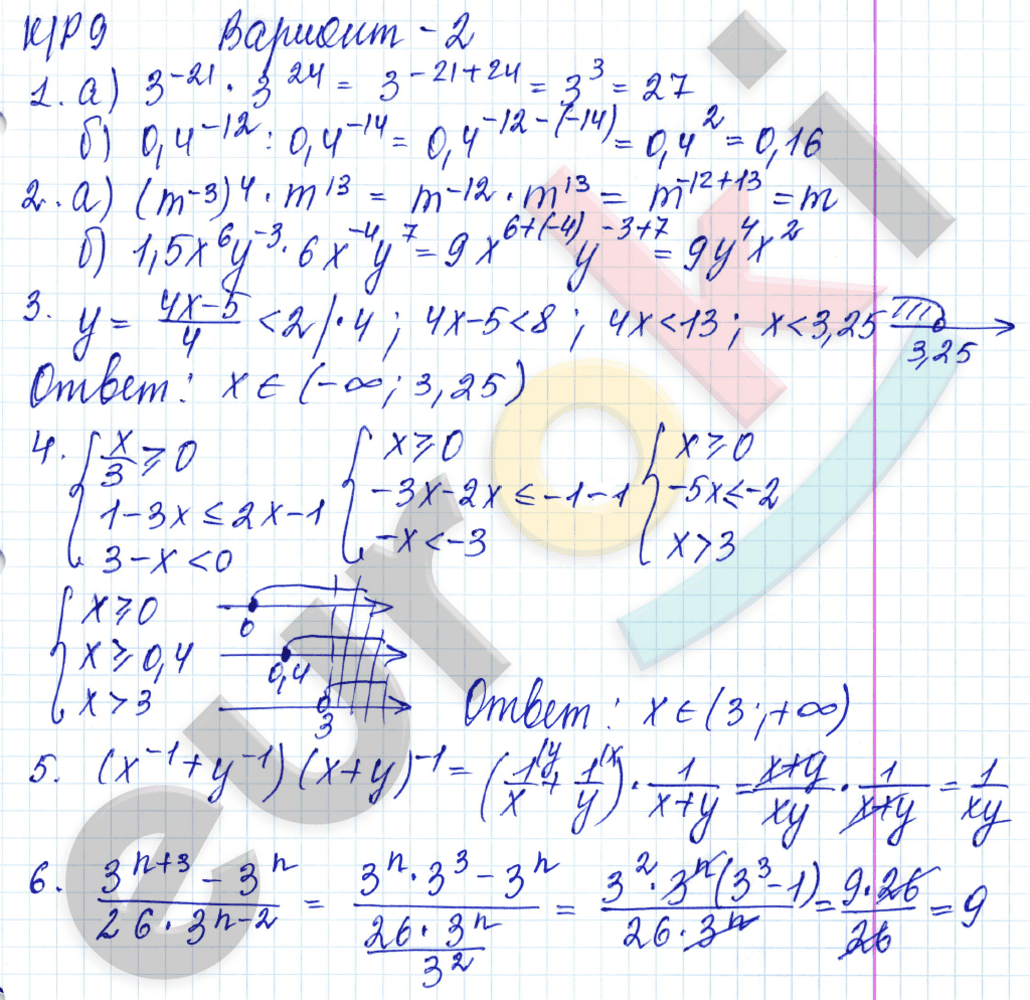 К/Р 9 Вариант - 2
1. а) 3^-21 · 3^24 = 3^-21+24 = 3^3 = 27
б) 0,4^-12 : 0,4^-14 = 0,4^-12-(-14) = 0,4^2 = 0,16
2. а) (m^-3)^4 · m^13 = m^-12 · m^13 = m^-12+13 = m
б) 1,5x^6y^-3 · 6x^-4y^7 = 9x^6+(-4) y^-3+7 = 9y^4x^2
3. y = (4x-5)/4 < 2 | · 4 ; 4x-5<8 ; 4x<13 ; x<3,25
3,25
Ответ: x ∈ (-∞; 3,25)
4. { x/3 ≥ 0 { x ≥ 0 { x ≥ 0
1-3x ≤ 2x-1 -3x-2x ≤ -1-1 -5x ≤ -2
3-x < 0 -x < -3 x > 3
{ x ≥ 0 0
x ≥ 0,4 0,4
x > 3 3 Ответ: x ∈ (3; +∞)
5. (x^-1+y^-1)(x+y)^-1 = (1/x^(y + 1/y^(x) · 1/(x+y) = (x+y)/xy · 1/(x+y) = 1/xy
6. (3^n+3 - 3^n)/(26 · 3^n-2) = (3^n · 3^3 - 3^n)/(26 · 3^n/3^2) = (3^2 · 3^n(3^3-1))/(26 · 3^n) = (9 · 26)/26 = 9
euroki